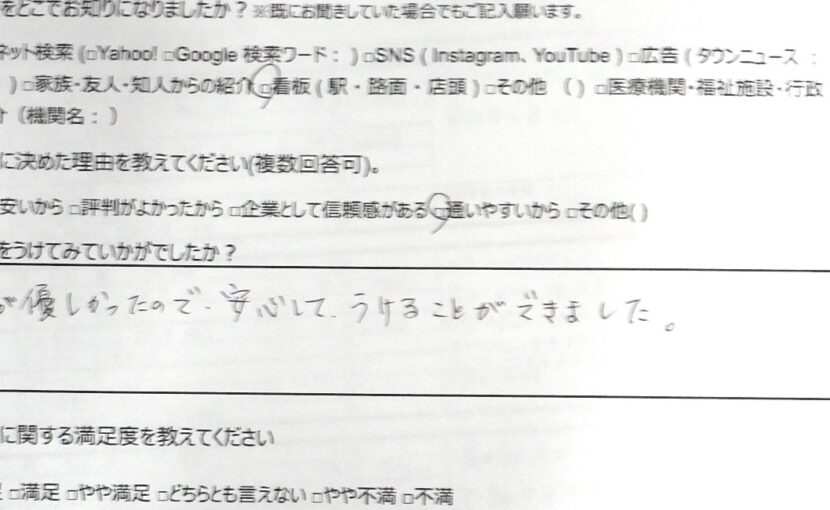 をどこでお知りになりましたか？※既にお聞きしていた場合でもご記入願います。
ネット検索 (□Yahoo! □Google 検索ワード： ) □SNS ( Instagram、YouTube ) □広告 ( タウンニュース ：
) □家族・友人・知人からの紹介 □看板 ( 駅 ・ 路面 ・ 店頭 ) □その他 （ ） □医療機関・福祉施設・行政
（機関名： ）
に決めた理由を教えてください(複数回答可)。
安いから □評判がよかったから □企業として信頼感がある □通いやすいから □その他( )
をうけてみていかがでしたか？
が優しかったので、安心して、うけることができました。
に関する満足度を教えてください
□満足 □やや満足 □どちらとも言えない □やや不満 □不満